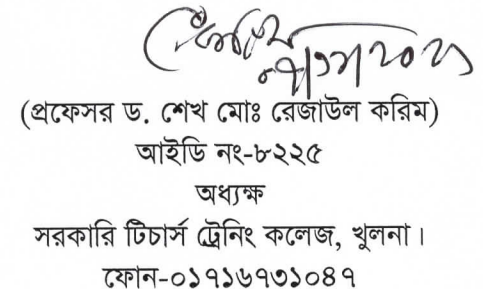 (প্রফেসর ড. শেখ মোঃ রেজাউল করিম)
আইডি নং-৮২২৫
অধ্যক্ষ
সরকারি টিচার্স ট্রেনিং কলেজ, খুলনা।
ফোন-০১৭১৬৭৩১০৪৭